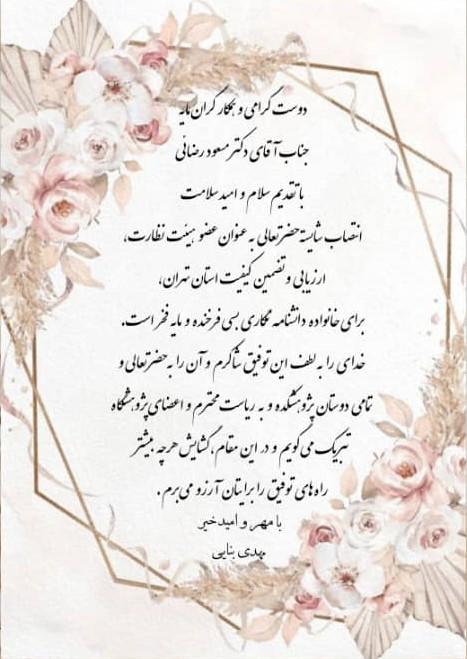 دوست گرامی و همکار گران‌مایه
جناب آقای دکتر مسعود رضائی
با تقدیم سلام و امید سلامت
انتصاب شایسته حضرتعالی به عنوان عضو هیئت نظارت،
ارزیابی و تضمین کیفیت استان تهران،
برای خانواده دانشنامه نگاری بسی فرخنده و مایه فخر است.
خدای را به لطف این توفیق شاکرم و آن را به حضرتعالی و
تمامی دوستان پژوهشکده و به ریاست محترم و اعضای پژوهشگاه
تبریک می‌گویم و در این مقام، گشایش هرچه بیشتر
راه‌های توفیق را برایتان آرزو می‌برم.
با مهر و امید خیر
مهدی بنایی